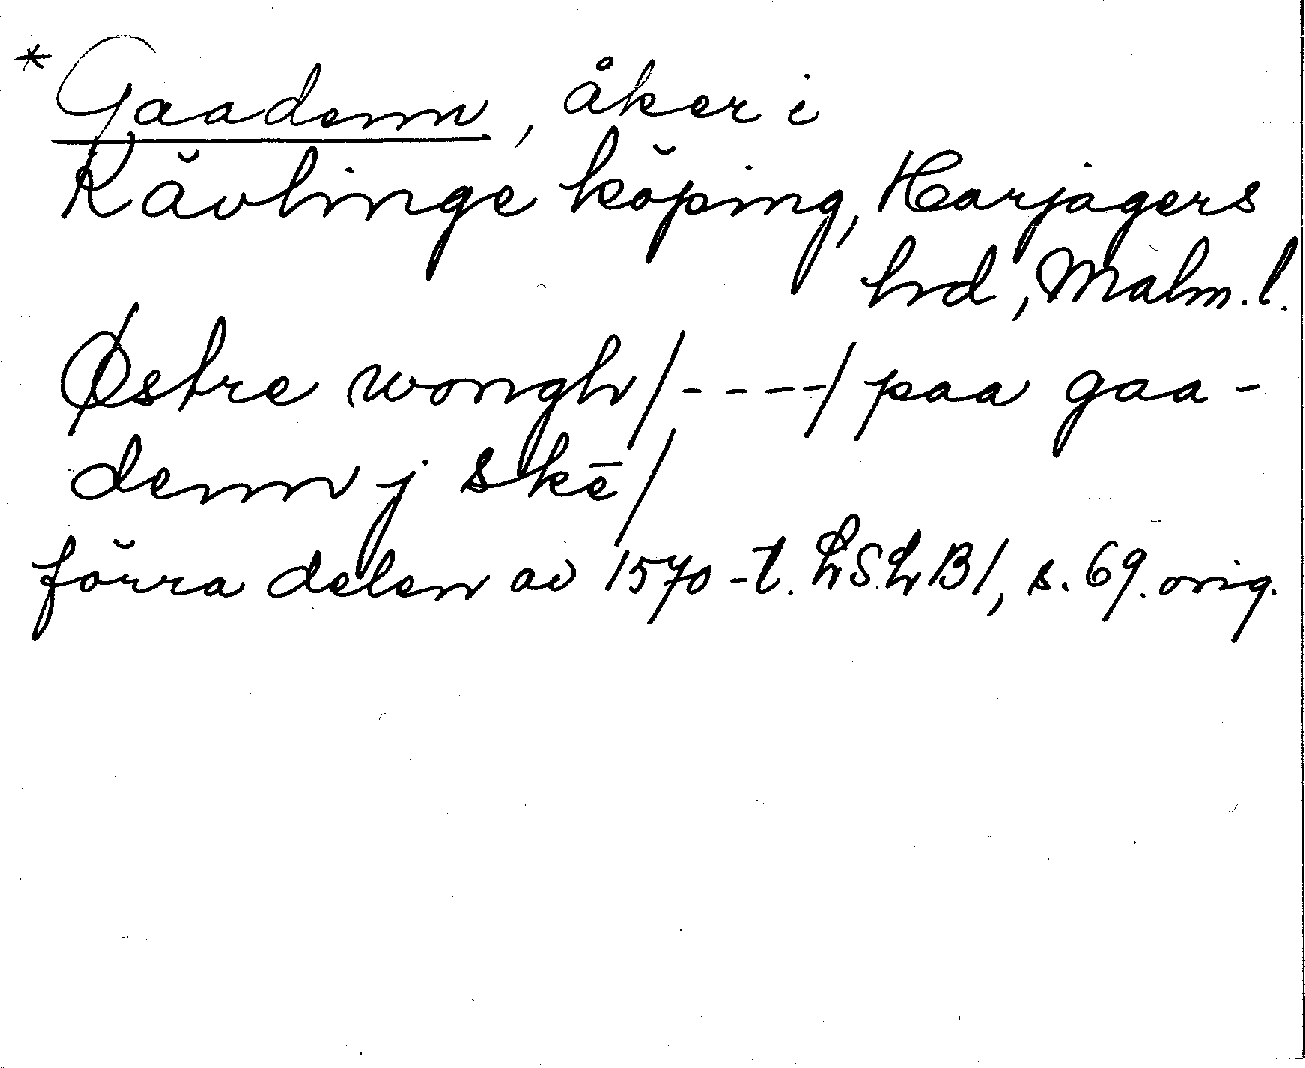 * Gaadenn, åker i
Kävlinge köping, Harjagers
hrd, Malm. l.
Østre wongh/----/paa gaa-
denn j skē/
förra delen av 1570-t. LSLB1, s. 69. orig.